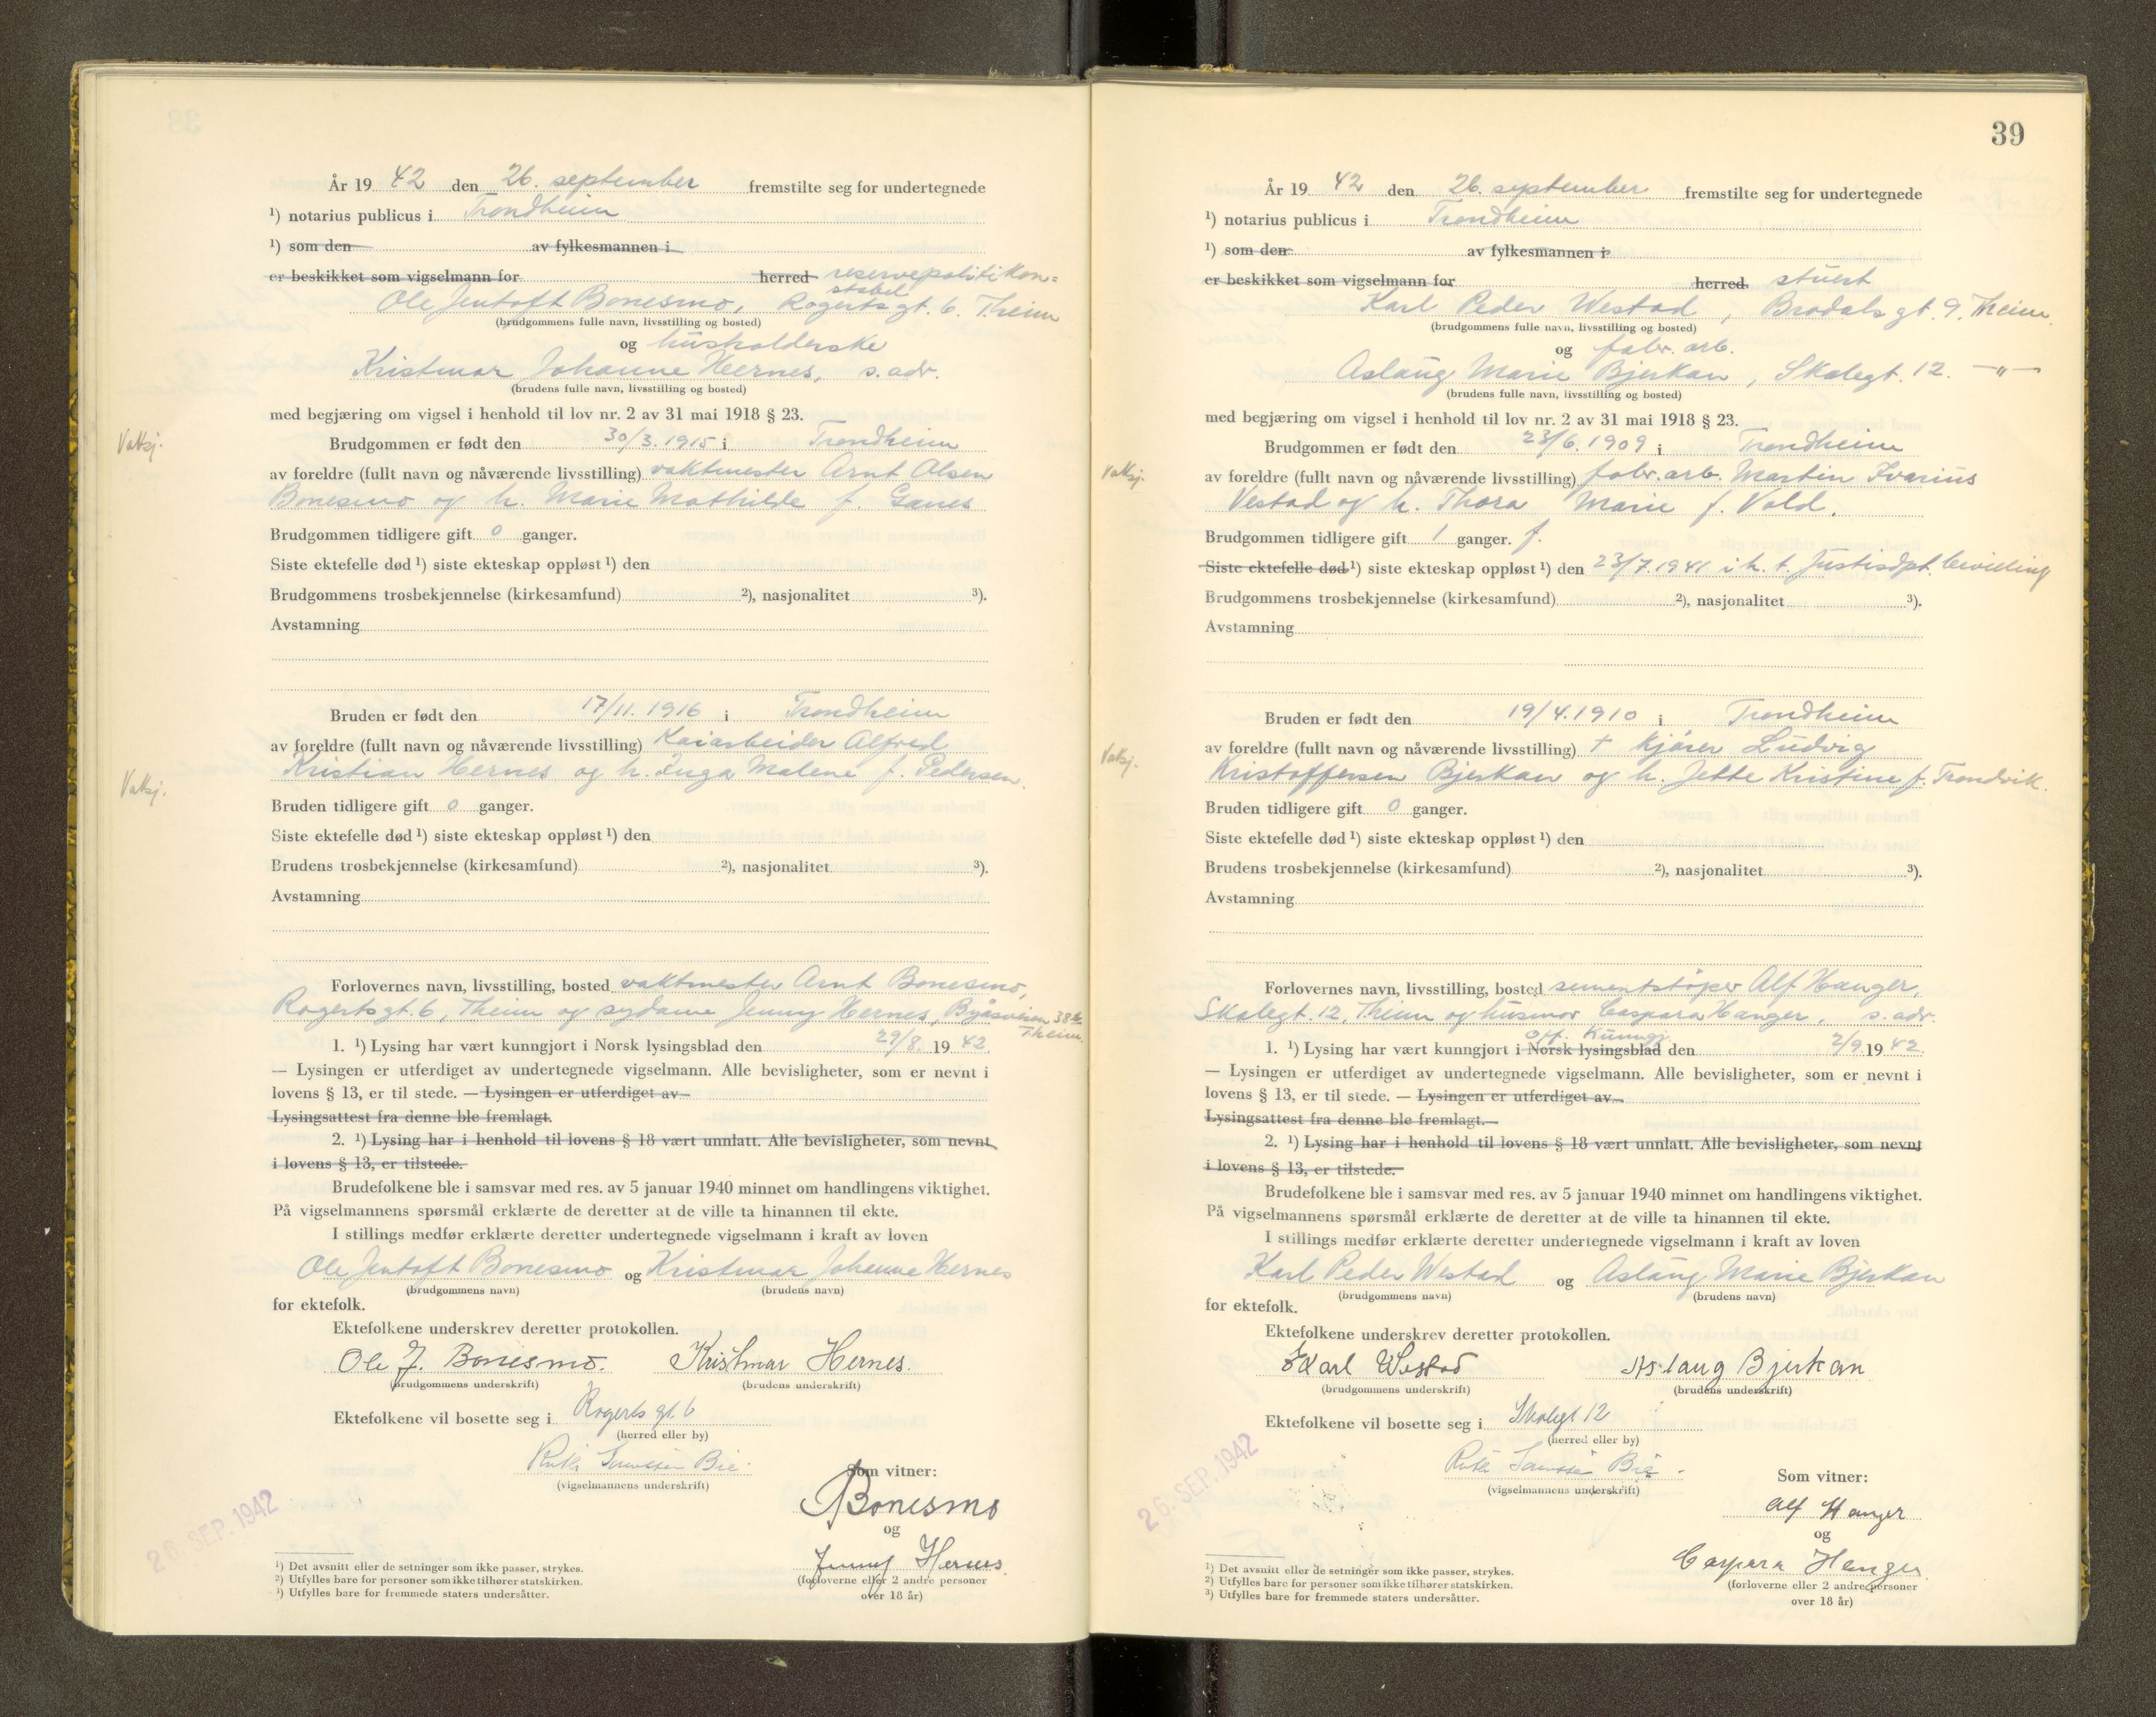 År 19 42 den 26. september fremstilte seg for undertegnede
¹) notarius publicus i Trondheim
¹) som den av fylkesmannen i
er beskikket som vigselmann for herred reservepolitikon=
stabel
Ole Jentoft Bonesmo, Rogertsgt. 6. Theim
(brudgommens fulle navn, livsstilling og bosted)
og husholderske
Kristmar Johanne Hernes, s. adr.
(brudens fulle navn, livsstilling og bosted)
med begjæring om vigsel i henhold til lov nr. 2 av 31 mai 1918 § 23.
Vaksj.
Brudgommen er født den 30/3. 1915 i Trondheim
av foreldre (fullt navn og nåværende livsstilling) vaktmester Arnt Olsen
Bonesmo og h. Marie Mathilde f. Ganes
Brudgommen tidligere gift 0 ganger.
Siste ektefelle død ¹) siste ekteskap oppløst ¹) den
Brudgommens trosbekjennelse (kirkesamfund) ²), nasjonalitet ³).
Avstamning
Bruden er født den 17/11. 1916 i Trondheim
av foreldre (fullt navn og nåværende livsstilling) Kaiarbeider Alfred
Kristian Hernes og h. Inga Malene f. Pedersen.
Vaksj.
Bruden tidligere gift 0 ganger.
Siste ektefelle død ¹) siste ekteskap oppløst ¹) den
Brudens trosbekjennelse (kirkesamfund) ²), nasjonalitet ³).
Avstamning
Forlovernes navn, livsstilling, bosted vaktmester Arnt Bonesmo,
Rogertsgt. 6, Theim og sydame Jenny Hernes, Byåsveien 38b
Theim.
1. ¹) Lysing har vært kunngjort i Norsk lysingsblad den 29/8. 19 42.
— Lysingen er utferdiget av undertegnede vigselmann. Alle bevisligheter, som er nevnt i
lovens § 13, er til stede. — Lysingen er utferdiget av
Lysingsattest fra denne ble fremlagt.
2. ¹) Lysing har i henhold til lovens § 18 vært unnlatt. Alle bevisligheter, som nevnt
i lovens § 13, er tilstede.
Brudefolkene ble i samsvar med res. av 5 januar 1940 minnet om handlingens viktighet.
På vigselmannens spørsmål erklærte de deretter at de ville ta hinannen til ekte.
I stillings medfør erklærte deretter undertegnede vigselmann i kraft av loven
Ole Jentoft Bonesmo og Kristmar Johanne Hernes
(brudgommens navn) (brudens navn)
for ektefolk.
Ektefolkene underskrev deretter protokollen.
Ole J. Bonesmo. Kristmar Hernes.
(brudgommens underskrift) (brudens underskrift)
Ektefolkene vil bosette seg i Rogerts gt. 6
(herred eller by)
Ruth Bie.
(vigselmannens underskrift)
Som vitner:
Bonesmo
og
Jenny Hernes.
(forloverne eller 2 andre personer
over 18 år)
26. SEP. 1942
¹) Det avsnitt eller de setninger som ikke passer, strykes.
²) Utfylles bare for personer som ikke tilhører statskirken.
³) Utfylles bare for fremmede staters undersåtter.
39
År 19 42 den 26. september fremstilte seg for undertegnede
¹) notarius publicus i Trondheim
¹) som den av fylkesmannen i
er beskikket som vigselmann for herred stuert
Karl Peder Westad, Brodals gt. 9. Theim.
(brudgommens fulle navn, livsstilling og bosted)
og fabr. arb.
Aslaug Marie Bjerkan, Skalegt. 12. —"—
(brudens fulle navn, livsstilling og bosted)
med begjæring om vigsel i henhold til lov nr. 2 av 31 mai 1918 § 23.
Brudgommen er født den 23/6. 1909 i Trondheim
Vaksj.
av foreldre (fullt navn og nåværende livsstilling) fabr. arb. Martin Ivarius
Vestad og h. Thora Marie f. Vold.
Brudgommen tidligere gift 1 ganger. f.
Siste ektefelle død ¹) siste ekteskap oppløst ¹) den 23/7. 1941 i h. t. Justisdpt. bevilling
Brudgommens trosbekjennelse (kirkesamfund) ²), nasjonalitet ³).
Avstamning
Bruden er født den 19/4. 1910 i Trondheim
Vaksj.
av foreldre (fullt navn og nåværende livsstilling) † kjører Ludvig
Kristoffersen Bjerkan og h. Jette Kristine f. Trondvik.
Bruden tidligere gift 0 ganger.
Siste ektefelle død ¹) siste ekteskap oppløst ¹) den
Brudens trosbekjennelse (kirkesamfund) ²), nasjonalitet ³).
Avstamning
Forlovernes navn, livsstilling, bosted sementstøper Alf Hanger,
Skalegt. 12, Theim og husmor Caspara Hanger, s. adr.
Off. Kunngj.
1. ¹) Lysing har vært kunngjort i Norsk lysingsblad den 2/9 19 42.
— Lysingen er utferdiget av undertegnede vigselmann. Alle bevisligheter, som er nevnt i
lovens § 13, er til stede. — Lysingen er utferdiget av
Lysingsattest fra denne ble fremlagt.
2. ¹) Lysing har i henhold til lovens § 18 vært unnlatt. Alle bevisligheter, som nevnt
i lovens § 13, er tilstede.
Brudefolkene ble i samsvar med res. av 5 januar 1940 minnet om handlingens viktighet.
På vigselmannens spørsmål erklærte de deretter at de ville ta hinannen til ekte.
I stillings medfør erklærte deretter undertegnede vigselmann i kraft av loven
Karl Peder Westad og Aslaug Marie Bjerkan
(brudgommens navn) (brudens navn)
for ektefolk.
Ektefolkene underskrev deretter protokollen.
Karl Westad Aslaug Bjerkan
(brudgommens underskrift) (brudens underskrift)
Ektefolkene vil bosette seg i Skalegt 12
(herred eller by)
Ruth Bie.
(vigselmannens underskrift)
Som vitner:
Alf Hanger
og
Caspara Hanger.
(forloverne eller 2 andre personer
over 18 år)
26. SEP. 1942
¹) Det avsnitt eller de setninger som ikke passer, strykes.
²) Utfylles bare for personer som ikke tilhører statskirken.
³) Utfylles bare for fremmede staters undersåtter.